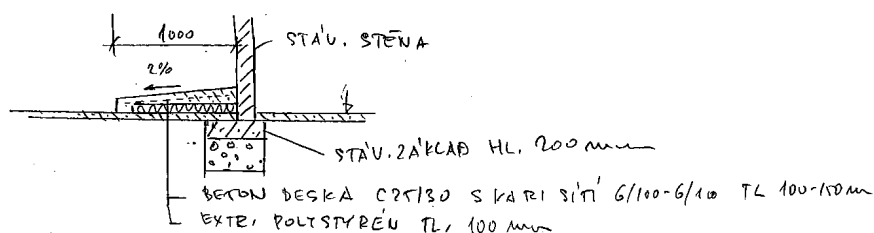 1000
STÁV. STĚNA
2%
STÁV. ZÁKLAD HL. 200 mm
BETON DESKA C25/30 S KARI SÍTÍ 6/100-6/100 TL 100-150 m
EXTR. POLYSTYRÉN TL. 100 mm